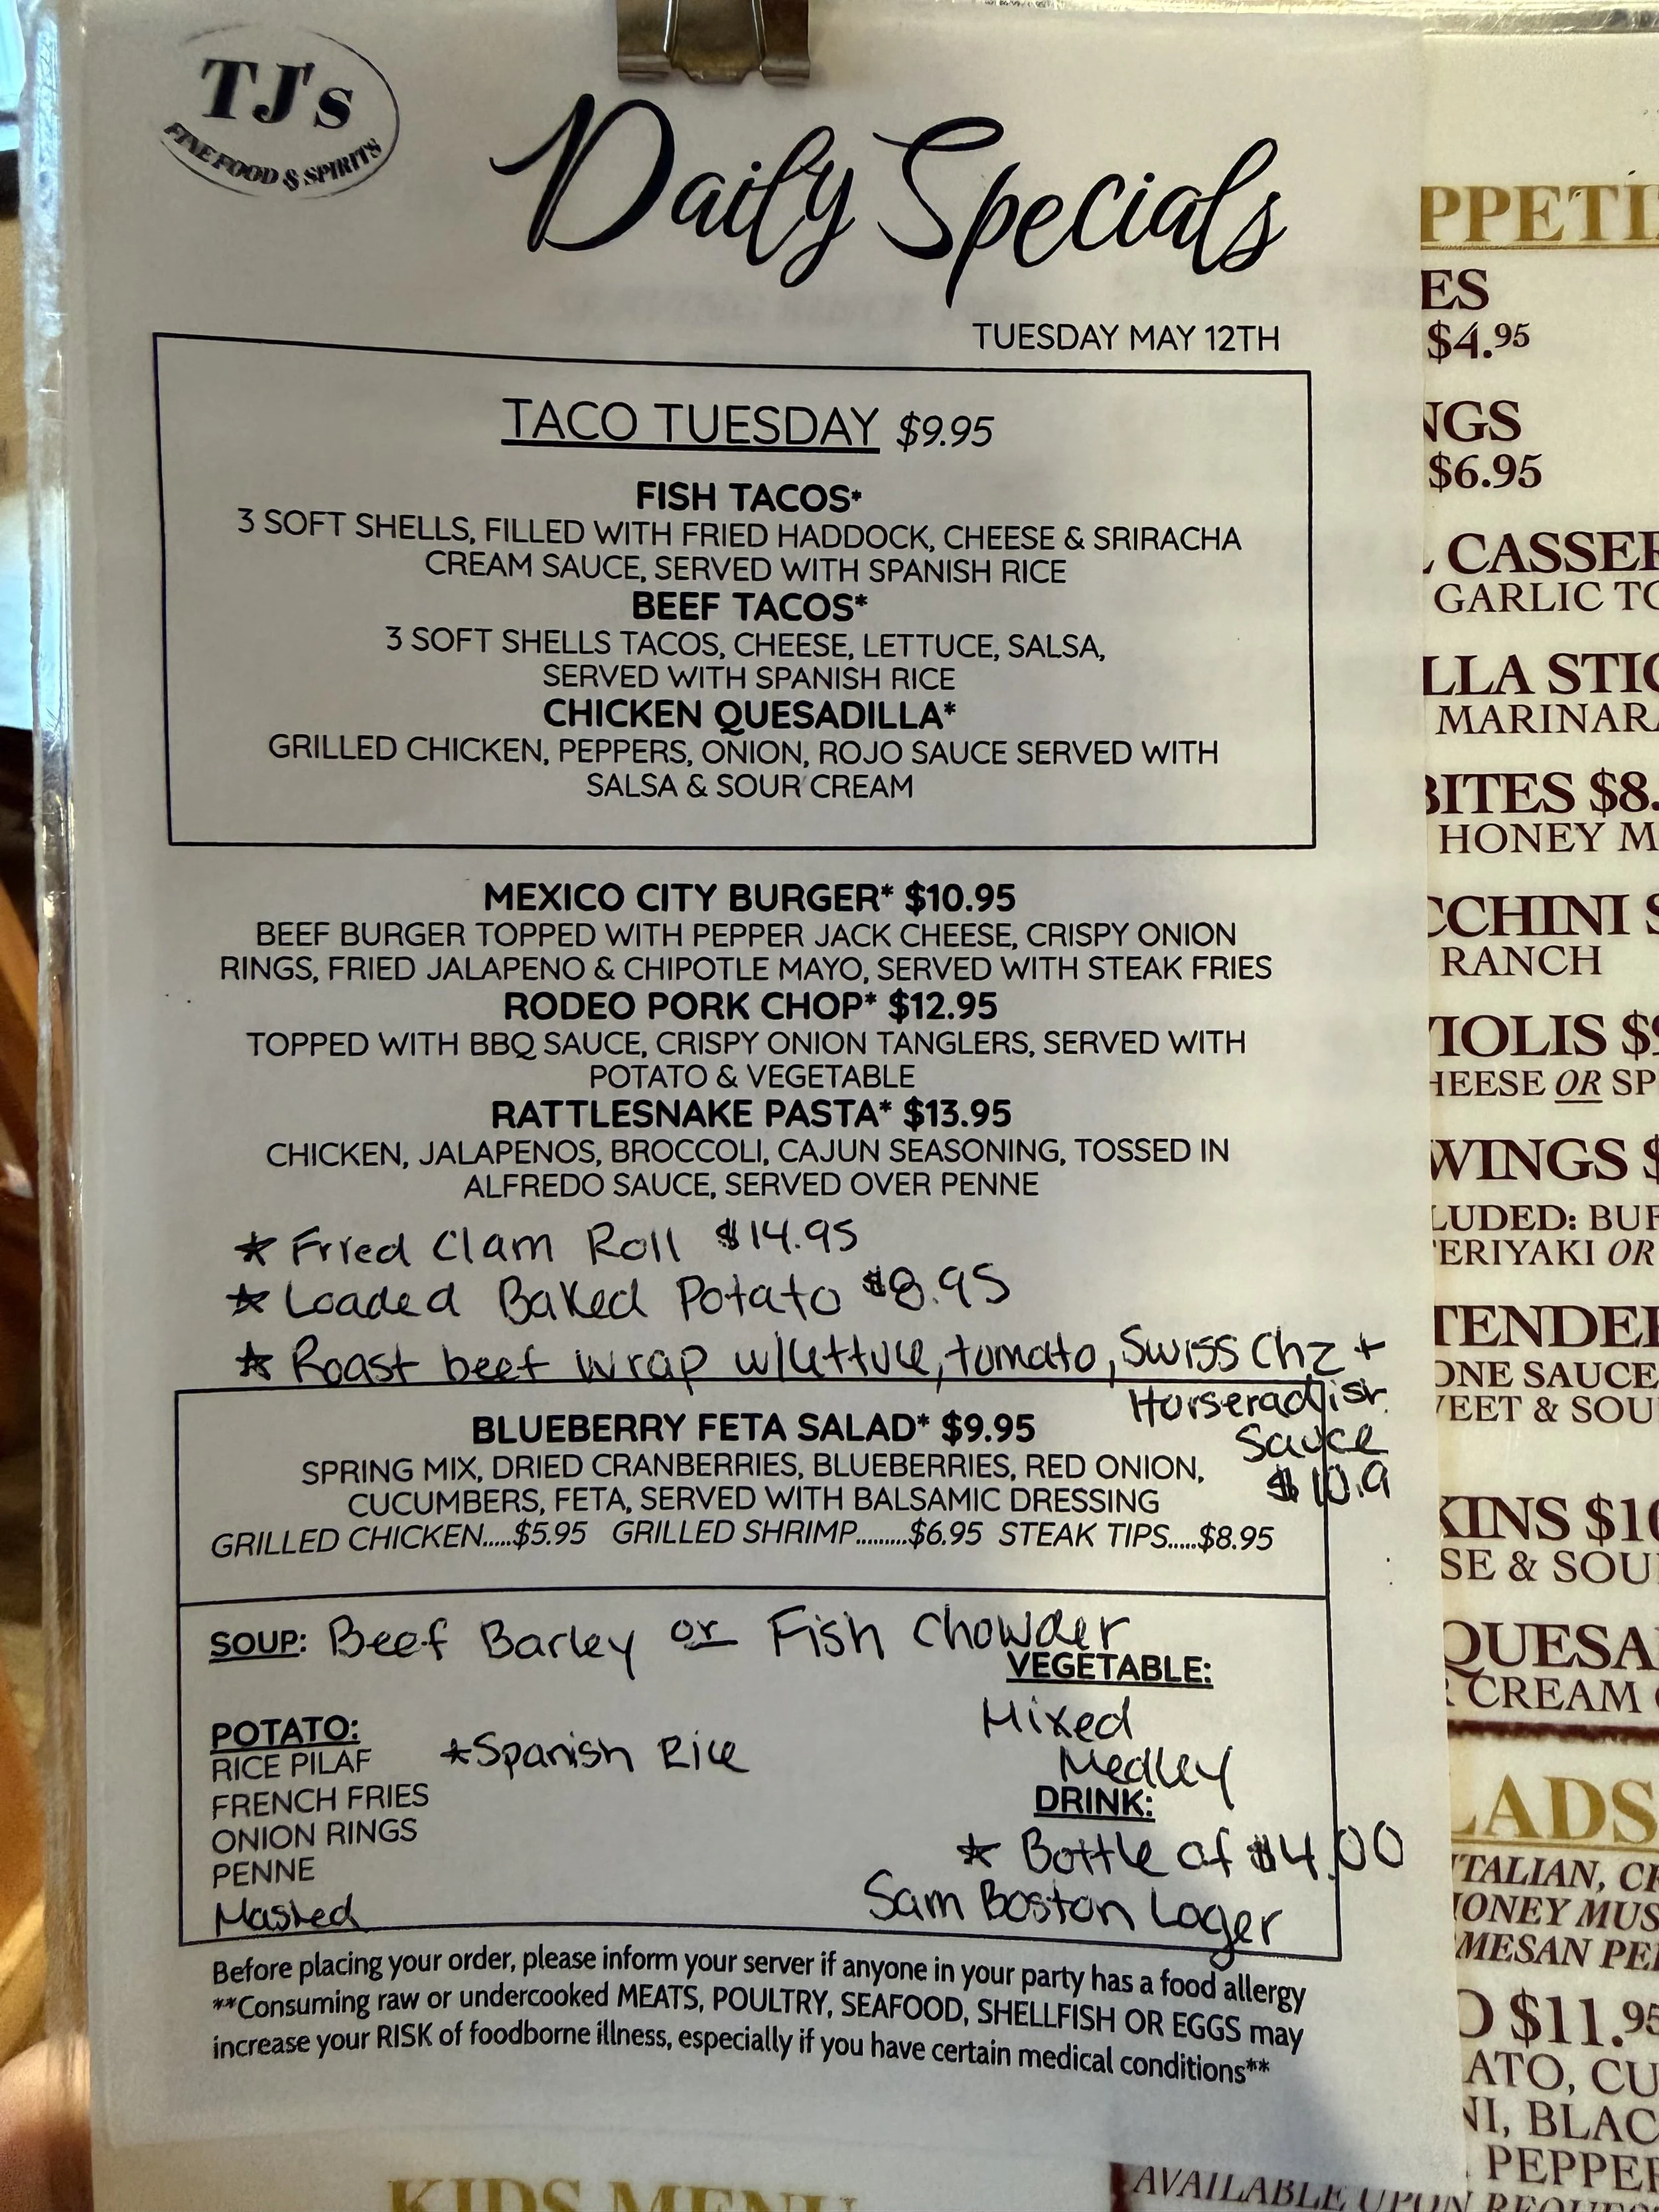 TJ's
FINE FOOD & SPIRITS
Daily Specials
TUESDAY MAY 12TH
TACO TUESDAY $9.95
FISH TACOS*
3 SOFT SHELLS, FILLED WITH FRIED HADDOCK, CHEESE & SRIRACHA
CREAM SAUCE, SERVED WITH SPANISH RICE
BEEF TACOS*
3 SOFT SHELLS TACOS, CHEESE, LETTUCE, SALSA,
SERVED WITH SPANISH RICE
CHICKEN QUESADILLA*
GRILLED CHICKEN, PEPPERS, ONION, ROJO SAUCE SERVED WITH
SALSA & SOUR CREAM
MEXICO CITY BURGER* $10.95
BEEF BURGER TOPPED WITH PEPPER JACK CHEESE, CRISPY ONION
RINGS, FRIED JALAPENO & CHIPOTLE MAYO, SERVED WITH STEAK FRIES
RODEO PORK CHOP* $12.95
TOPPED WITH BBQ SAUCE, CRISPY ONION TANGLERS, SERVED WITH
POTATO & VEGETABLE
RATTLESNAKE PASTA* $13.95
CHICKEN, JALAPENOS, BROCCOLI, CAJUN SEASONING, TOSSED IN
ALFREDO SAUCE, SERVED OVER PENNE
* Fried Clam Roll $14.95
* Loaded Baked Potato $8.95
* Roast beef wrap w/lettuce, tomato, Swiss Chz +
Horseradish
Sauce
$10.9
BLUEBERRY FETA SALAD* $9.95
SPRING MIX, DRIED CRANBERRIES, BLUEBERRIES, RED ONION,
CUCUMBERS, FETA, SERVED WITH BALSAMIC DRESSING
GRILLED CHICKEN.....$5.95 GRILLED SHRIMP.........$6.95 STEAK TIPS.....$8.95
SOUP: Beef Barley or Fish Chowder
VEGETABLE:
Mixed
Medley
POTATO:
RICE PILAF *Spanish Rice
FRENCH FRIES
ONION RINGS
PENNE
Mashed
DRINK:
* Bottle of $4.00
Sam Boston Lager
Before placing your order, please inform your server if anyone in your party has a food allergy
**Consuming raw or undercooked MEATS, POULTRY, SEAFOOD, SHELLFISH OR EGGS may
increase your RISK of foodborne illness, especially if you have certain medical conditions**
KIDS MENU
PPETI
ES
$4.95
NGS
$6.95
CASSER
GARLIC TO
LLA STIC
MARINARA
BITES $8.
HONEY M
CCHINI S
RANCH
IOLIS $9
HEESE OR SP
WINGS $
LUDED: BUF
ERIYAKI OR
TENDE
ONE SAUCE
EET & SOU
KINS $10
SE & SOU
QUESA
CREAM
LADS
ITALIAN, C
HONEY MUS
MESAN PE
O $11.95
ATO, CU
NI, BLAC
PEPPE
AVAILABLE UPON REQUES